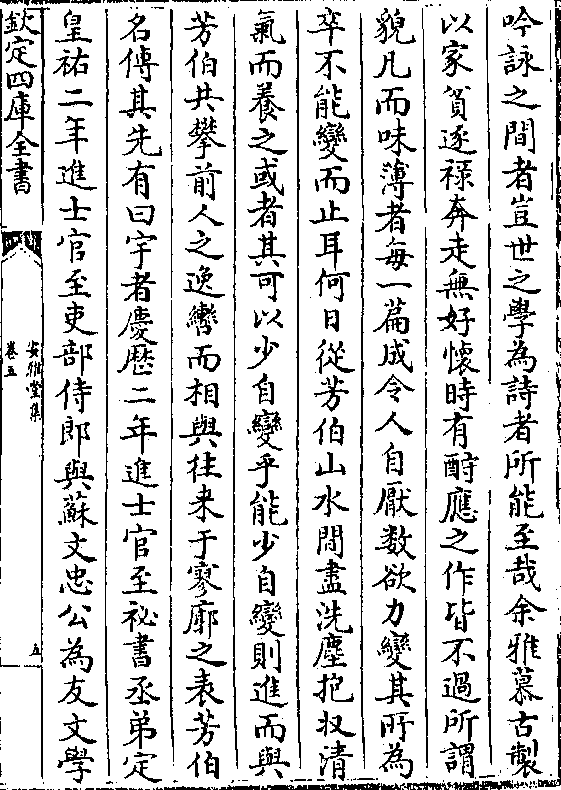 吟詠之間者豈世之學為詩者所能至哉余雅慕古製
以家貧逐祿奔走無好懷時有酧應之作皆不過所謂
貌凡而味薄者每一篇成令人自厭数欲力變其所為
卒不能變而止耳何日從芳伯山水間盡洗塵抱収清
氣而養之或者其可以少自變乎能少自變則進而與
芳伯共攀前人之逸轡而相與往来于寥廓之表芳伯
名傅其先有曰宇者慶歴二年進士官至祕書丞弟定
皇祐二年進士官至吏部侍郎與蘇文忠公為友文學
欽定四庫全書
安雅堂集
卷五
五